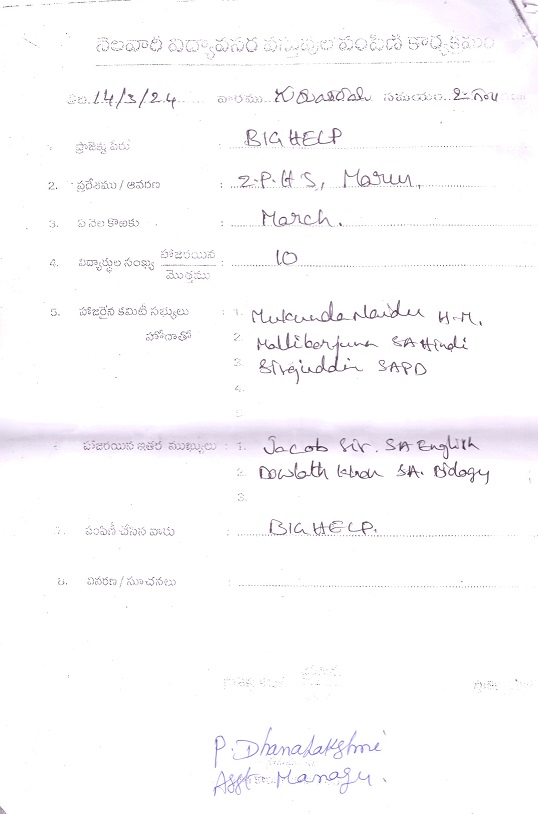 నెలవారీ విద్యావసర వస్తువుల పంపిణి కార్యక్రమం
తేది. 14/3/24 వారము గురువారము సమయం
1. ప్రాజెక్టు పేరు : BIG HELP
2. ప్రదేశము / ఆవరణ : Z.P.H.S, Marur.
3. ఏ నెల కొఱకు : March.
4. విద్యార్థుల సంఖ్య హాజరయిన / మొత్తము : 10
5. హాజరైన కమిటీ సభ్యులు : 1. Mukunda Naidu H.M.
హోదాతో 2. Mallikarjuna SA Hindi
3. Sirajuddin SAPD
4.
5.
6. హాజరయిన ఇతర ముఖ్యులు : 1. Jacob Sir. SA English
2. Dowlath Khan SA. Biology
3.
7. పంపిణీ చేసిన వారు : BIG HELP.
8. వివరణ / సూచనలు :
P. Dhanalakshmi
Asst. Manager.